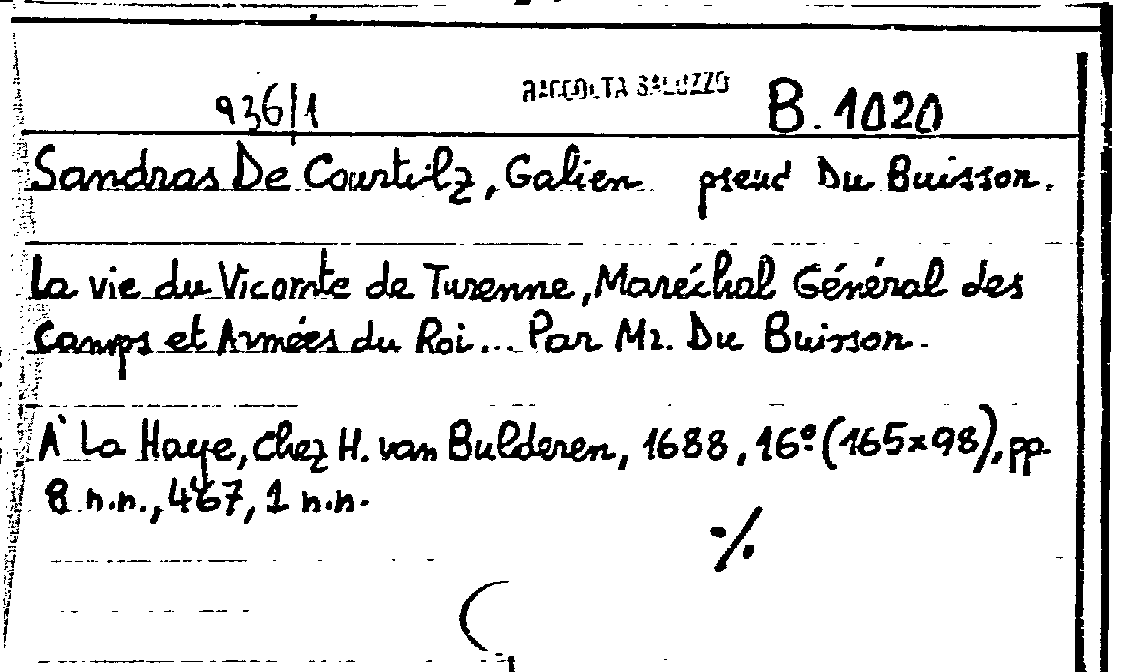 936/1 RACCOLTA SALUZZO B. 1020
Sandras De Courtilz, Galien pseud Du Buisson.
La vie du Vicomte de Turenne, Maréchal Général des
Camps et Armées du Roi... Par Mr. Du Buisson.
À La Haye, chez H. van Bulderen, 1688, 16º (165x98), pp.
8 n.n., 467, 1 n.n.
./.